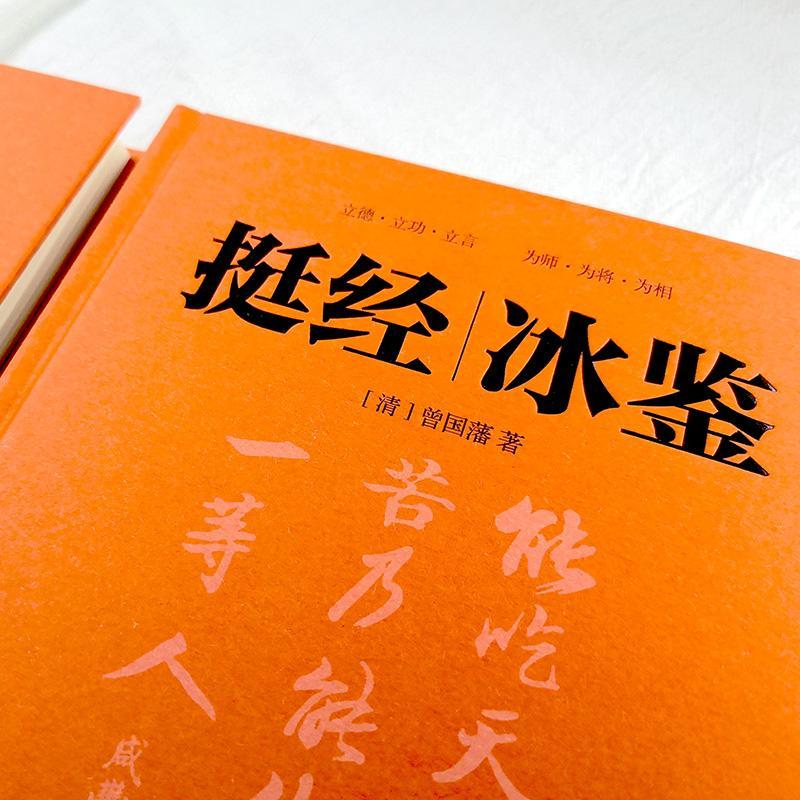 立德·立功·立言 为师·为将·为相
挺经|冰鉴
[清]曾国藩 著
能吃天
苦乃能
一等人
咸